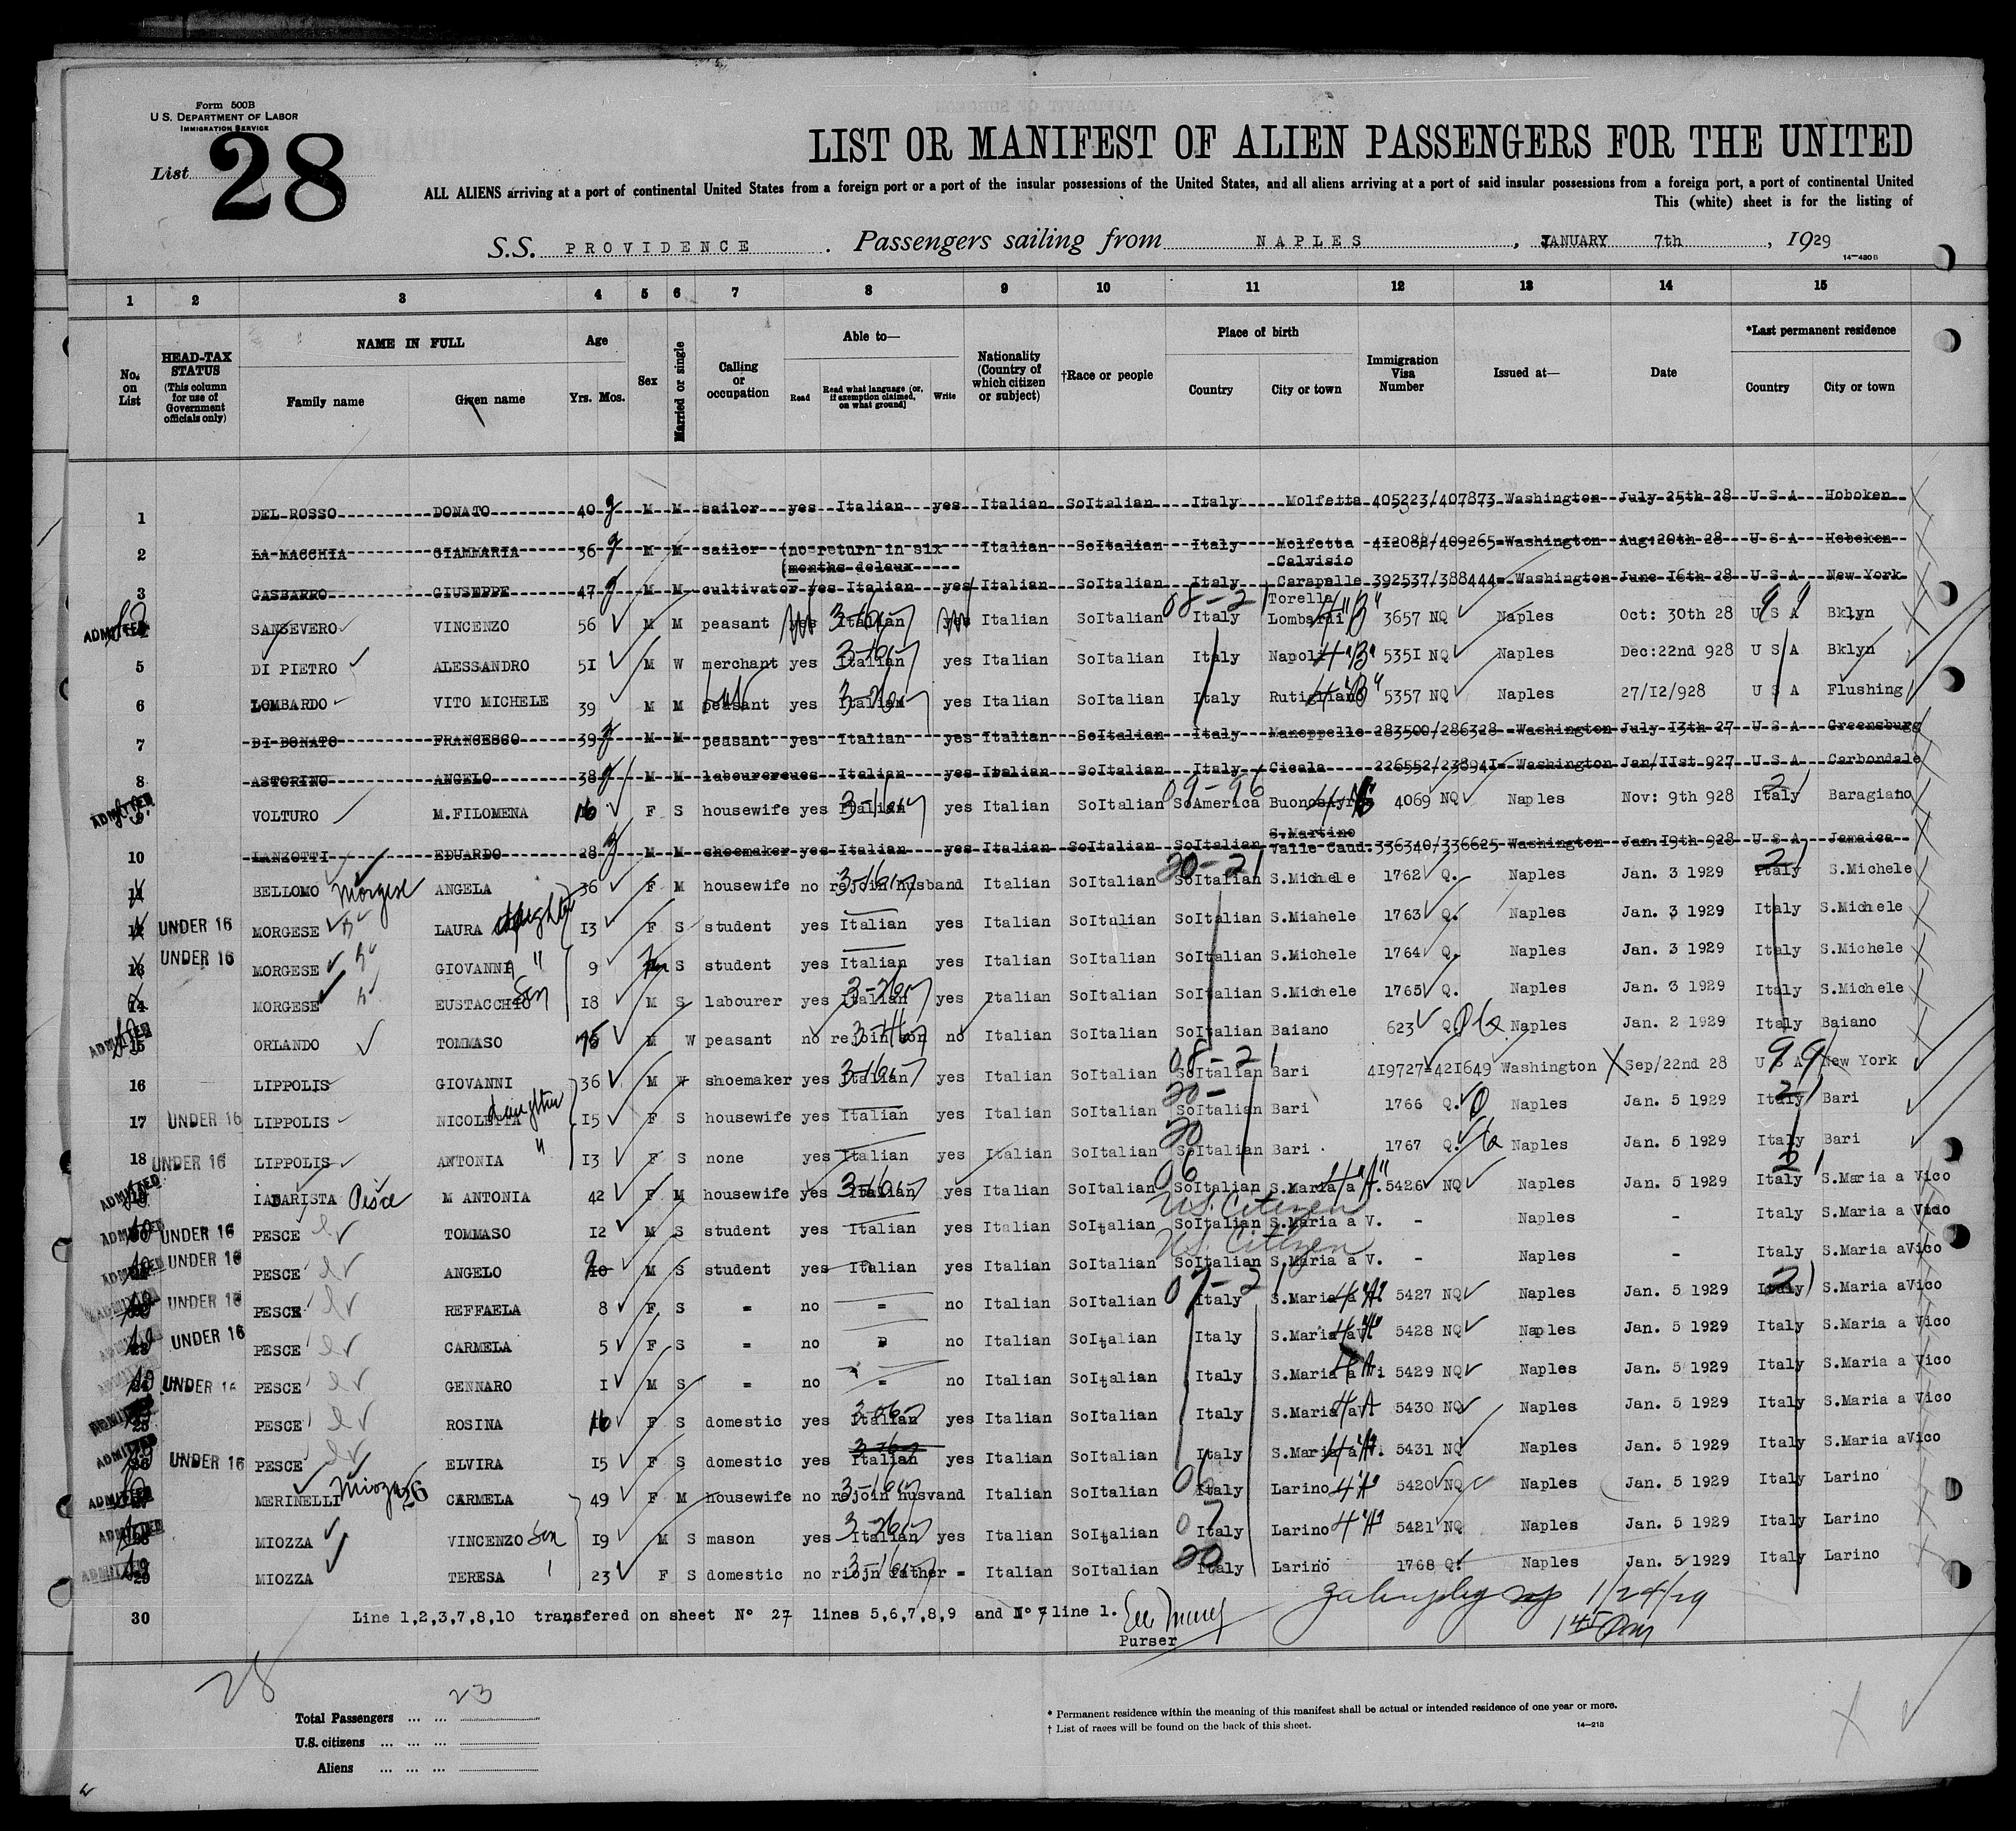 Form 500B
U.S. DEPARTMENT OF LABOR
IMMIGRATION SERVICE
List 28
LIST OR MANIFEST OF ALIEN PASSENGERS FOR THE UNITED
ALL ALIENS arriving at a port of continental United States from a foreign port or a port of the insular possessions of the United States, and all aliens arriving at a port of said insular possessions from a foreign port, a port of continental United
This (white) sheet is for the listing of
S.S. PROVIDENCE . Passengers sailing from NAPLES , JANUARY 7th , 1929
14—480B
1 2 3 4 5 6 7 8 9 10 11 12 13 14 15
No. on List HEAD-TAX STATUS (This column for use of Government officials only) NAME IN FULL Family name Given name Age Yrs. Mos. Sex Married or single Calling or occupation Able to— Read Read what language (or, if exemption claimed, on what ground) Write Nationality (Country of which citizen or subject) †Race or people Place of birth Country City or town Immigration Visa Number Issued at— Date *Last permanent residence Country City or town
1 DEL ROSSO DONATO 40 M M sailor yes Italian yes Italian SoItalian Italy Molfetta 405223/407873 Washington July 25th 28 U S A Hoboken
2 LA MACCHIA GIAMMARIA 36 M M sailor (no return in six Italian SoItalian Italy Molfetta 412082/409265 Washington Aug:20th 28 U S A Hoboken
(months delaux Calvisio
3 GASBARRO GIUSEPPE 47 M M cultivator yes Italian yes Italian SoItalian Italy Carapelle 392537/388444 Washington June 16th 28 U S A New York
ADMITTED SANSEVERO VINCENZO 56 M M peasant yes Italian yes Italian SoItalian Italy Torella Lombardi 4"B" 3657 NQ Naples Oct: 30th 28 U S A Bklyn
5 DI PIETRO ALESSANDRO 51 M W merchant yes Italian yes Italian SoItalian Italy Napoli 4"B" 5351 NQ Naples Dec:22nd 928 U S A Bklyn
6 LOMBARDO VITO MICHELE 39 M M peasant yes Italian yes Italian SoItalian Italy Rutigliano 5357 NQ Naples 27/12/928 U S A Flushing
7 DI DONATO FRANCESCO 39 M M peasant yes Italian yes Italian SoItalian Italy Manoppello 283500/286328 Washington July 13th 27 U S A Greensburg
8 ASTORINO ANGELO 38 M M labourer Italian yes Italian SoItalian Italy Cicala 226552/238941 Washington Jan/11st 927 U S A Carbondale
ADMITTED VOLTURO M.FILOMENA 16 F S housewife yes Italian yes Italian SoItalian SoAmerica Buenos Ayres 4069 NQ Naples Nov: 9th 928 Italy Baragiano
10 LANZOTTI EDUARDO 28 M M shoemaker yes Italian yes Italian SoItalian SoItalian S.Martino Valle Caud. 336340/336625 Washington Jan 19th 928 U S A Jamaica
11 BELLOMO Morgese ANGELA 36 F M housewife no rejoin husband Italian SoItalian SoItalian S.Michele 1762 Q. Naples Jan. 3 1929 Italy S.Michele
12 UNDER 16 MORGESE LAURA daughter 13 F S student yes Italian yes Italian SoItalian SoItalian S.Miahele 1763 Q. Naples Jan. 3 1929 Italy S.Michele
13 UNDER 16 MORGESE GIOVANNI " 9 S student yes Italian yes Italian SoItalian SoItalian S.Michele 1764 Q. Naples Jan. 3 1929 Italy S.Michele
14 MORGESE EUSTACCHIO Son 18 M S labourer yes Italian yes Italian SoItalian SoItalian S.Michele 1765 Q. Naples Jan. 3 1929 Italy S.Michele
ADMITTED 15 ORLANDO TOMMASO 75 M W peasant no rejoin son no Italian SoItalian SoItalian Baiano 623 Q. Naples Jan. 2 1929 Italy Baiano
16 LIPPOLIS GIOVANNI 36 M W shoemaker yes Italian yes Italian SoItalian SoItalian Bari 419727=421649 Washington Sep/22nd 28 U S A New York
17 UNDER 16 LIPPOLIS NICOLETTA daughter 15 F S housewife yes Italian yes Italian SoItalian SoItalian Bari 1766 Q. Naples Jan. 5 1929 Italy Bari
18 UNDER 16 LIPPOLIS ANTONIA " 13 F S none yes Italian yes Italian SoItalian SoItalian Bari 1767 Q. Naples Jan. 5 1929 Italy Bari
ADMITTED IADARISTA Pesce M ANTONIA 42 F M housewife yes Italian yes Italian SoItalian SoItalian S.Maria a 4"A" 5426 NQ Naples Jan. 5 1929 Italy S.Maria a Vico
U.S. Citizen
ADMITTED UNDER 16 PESCE TOMMASO 12 M S student yes Italian yes Italian SoItalian SoItalian S.Maria a V. - Naples - Italy S.Maria a Vico
U.S. Citizen
ADMITTED UNDER 16 PESCE ANGELO 10 M S student yes Italian yes Italian SoItalian SoItalian S.Maria a V. - Naples - Italy S.Maria aVico
ADMITTED UNDER 16 PESCE REFFAELA 8 F S = no = no Italian SoItalian Italy S.Maria a 5427 NQ Naples Jan. 5 1929 Italy S.Maria aVico
UNDER 16 PESCE CARMELA 5 F S = no no Italian SoItalian Italy S.Maria a 5428 NQ Naples Jan. 5 1929 Italy S.Maria a Vico
UNDER 16 PESCE GENNARO 1 M S = no = no Italian SoItalian Italy S.Maria a 5429 NQ Naples Jan. 5 1929 Italy S.Maria a Vico
ADMITTED 25 PESCE ROSINA 16 F S domestic yes Italian yes Italian SoItalian Italy S.Maria 5430 NQ Naples Jan. 5 1929 Italy S.Maria a Vico
ADMITTED 26 UNDER 16 PESCE ELVIRA 15 F S domestic yes Italian yes Italian SoItalian Italy S.Maria a 5431 NQ Naples Jan. 5 1929 Italy S.Maria aVico
ADMITTED MERINELLI Miozza CARMELA 49 F M housewife no rejoin husvand Italian SoItalian Italy Larino 4"A" 5420 NQ Naples Jan. 5 1929 Italy Larino
ADMITTED 28 MIOZZA VINCENZO Son 19 M S mason yes Italian yes Italian SoItalian Italy Larino 4"A" 5421 NQ Naples Jan. 5 1929 Italy Larino
ADMITTED 29 MIOZZA TERESA 23 F S domestic no riojn father = Italian SoItalian Italy Larino 1768 Q. Naples Jan. 5 1929 Italy Larino
30 Line 1,2,3,7,8,10 transfered on sheet N° 27 lines 5,6,7,8,9 and N° 7 line 1.
Purser
1/24/29
145 Pm
28
23
Total Passengers ... ...
U.S. citizens ... ... ...
Aliens ... ... ...
* Permanent residence within the meaning of this manifest shall be actual or intended residence of one year or more.
† List of races will be found on the back of this sheet.
14—218